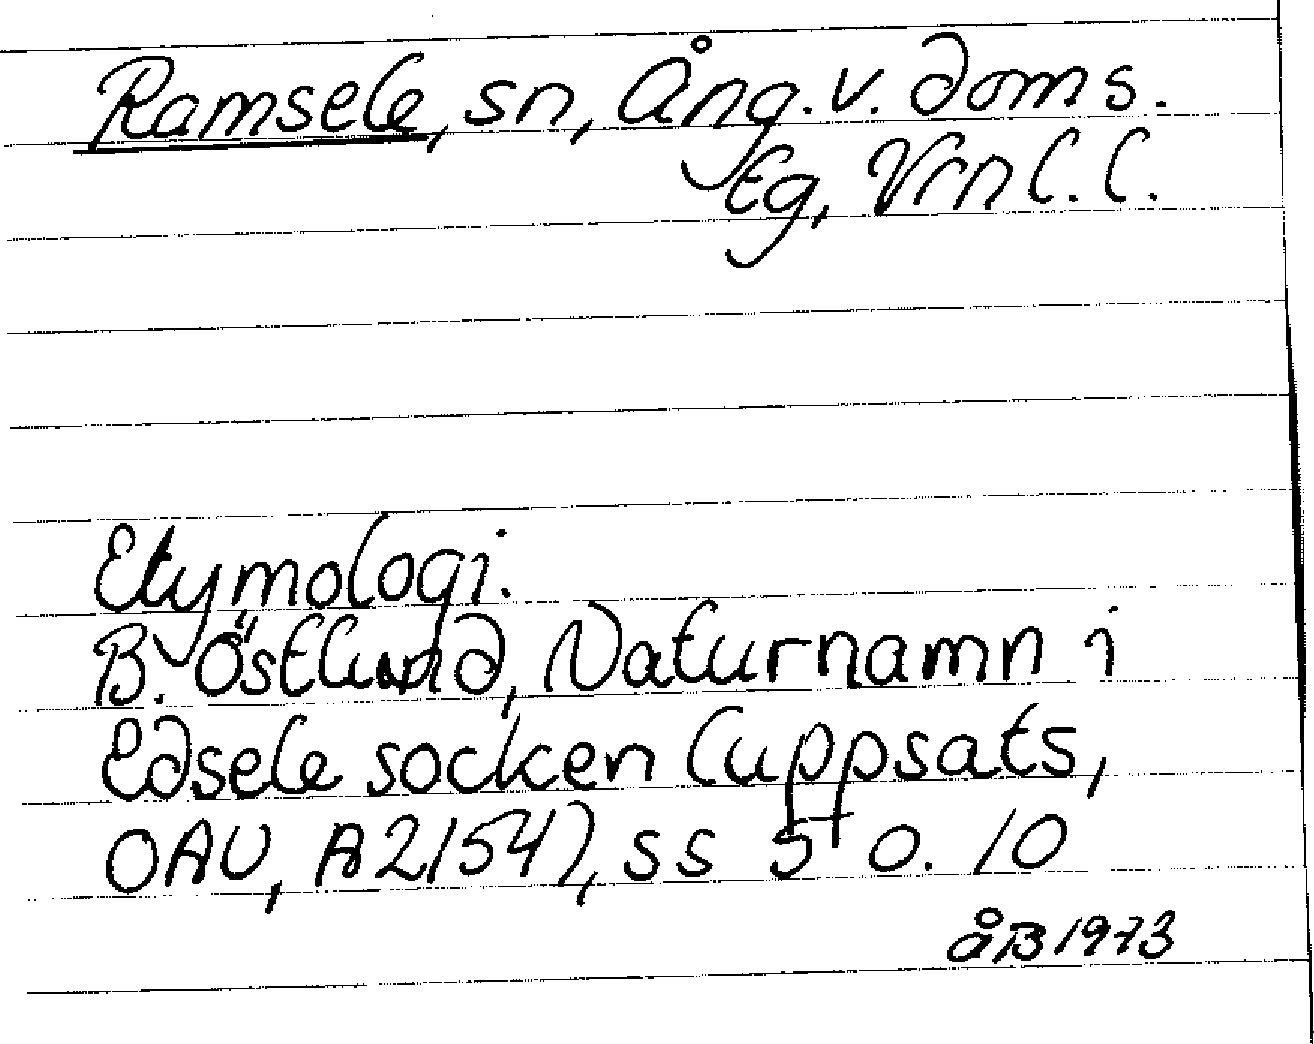 Ramsele, sn, Ång. v. doms.
tg, Vrnl. l.
Etymologi.
B. Östlund, Naturnamn i
Edsele socken (uppsats,
OAU, A2154), ss 5 o. 10
ÅB 1973